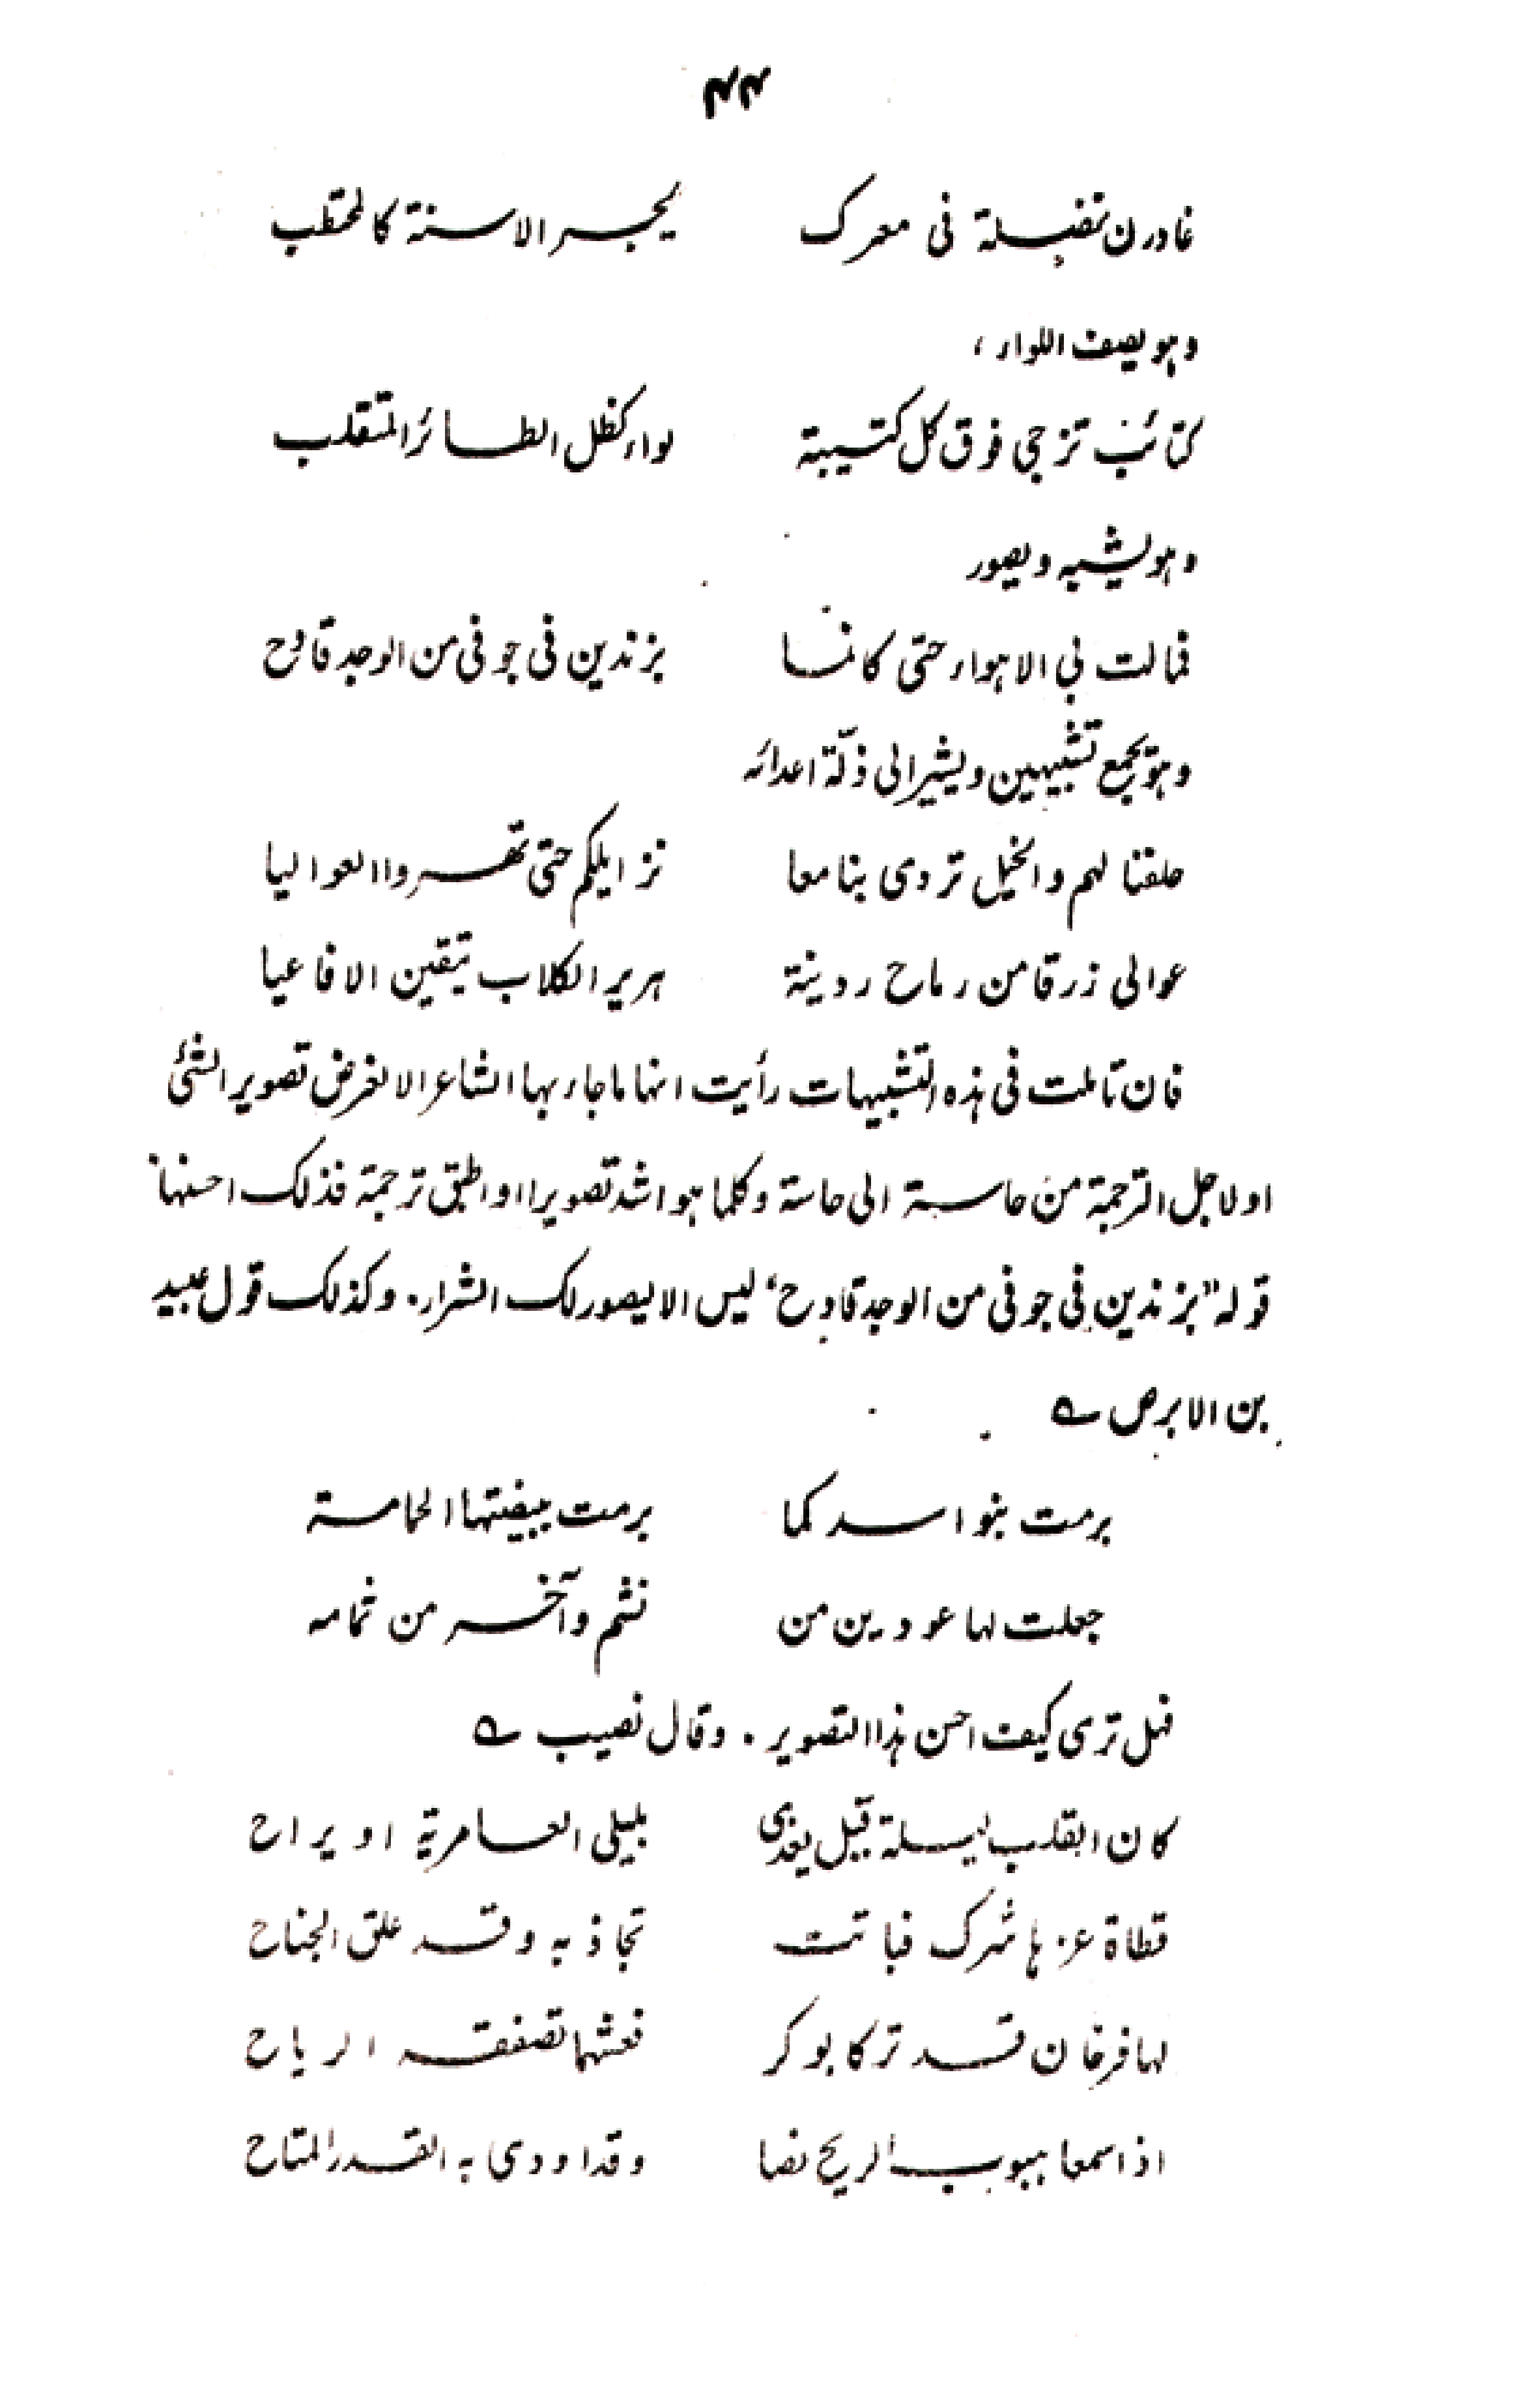 ۴۴
غادرن نضلة فى معرك يجر الاسنة كالمحتطب
وهو يصف اللواء،
كتائب تزجى فوق كل كتيبة لواء كظل الطائر المتقلب
وهو يشبه ويصور
فمالت بى الاهواء حتى كانما بزندين فى جوفى من الوجد قادح
وهو يجمع تشبيهين ويشير الى ذلّة اعدائه
حلفنا لهم والخيل تردى بنا معا نزايلكم حتى تهروا العواليا
عوالى زرقا من رماح ردينة هرير الكلاب يتقين الافاعيا
فان تاملت فى هذه التشبيهات رأيت انها ما جاء بها الشاعر الا لغرض تصوير الشئ
او لاجل الترجمة من حاسة الى حاسة وكلما هو اشد تصويرا او اطبق ترجمة فذلك احسنها
قوله "بزندين فى جوفى من الوجد قادح" ليس الا ليصور لك الشرار. وكذلك قول عبيد
بن الابرص ؎
برمت بنو اسد كما برمت ببيضتها الحمامة
جعلت لها عودين من نشم وآخر من ثمامه
فهل ترى كيف احسن هذا التصوير. وقال نصيب ؎
كان القلب ليلة قيل يغدى بليلى العامرية او يراح
قطاة عزها شرك فباتت تجاذبه وقد علق الجناح
لها فرخان قد تركا بوكر فعشهما تصفقه الرياح
اذا سمعا هبوب الريح نضا وقد اودى به القدر المتاح